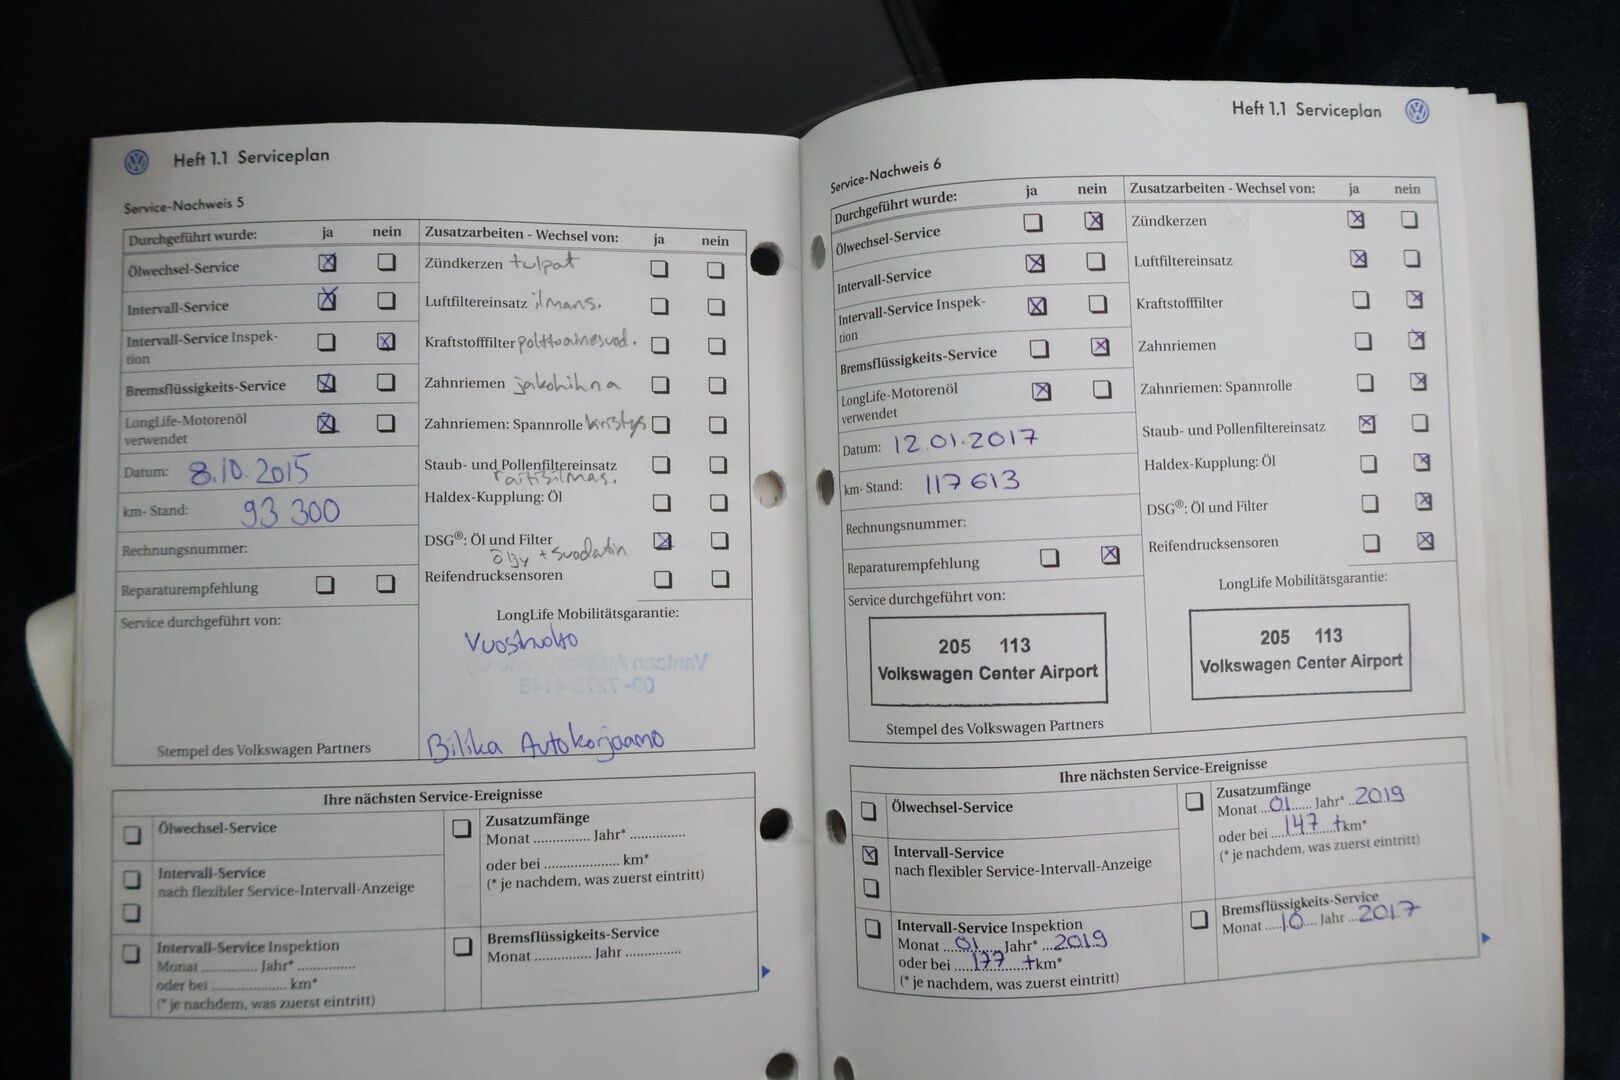 Heft 1.1 Serviceplan
Service-Nachweis 5
Durchgeführt wurde: ja nein
Ölwechsel-Service
Intervall-Service
Intervall-Service Inspek-
tion
Bremsflüssigkeits-Service
LongLife-Motorenöl
verwendet
Datum: 8.10.2015
km- Stand: 93 300
Rechnungsnummer:
Reparaturempfehlung
Service durchgeführt von:
Stempel des Volkswagen Partners
Zusatzarbeiten - Wechsel von: ja nein
Zündkerzen tulpat
Luftfiltereinsatz ilmans.
Kraftstofffilter polttoainesuod.
Zahnriemen jakohihna
Zahnriemen: Spannrolle kiristys
Staub- und Pollenfiltereinsatz
raitisilmas.
Haldex-Kupplung: Öl
DSG®: Öl und Filter
öljy + suodatin
Reifendrucksensoren
LongLife Mobilitätsgarantie:
Vuosihuolto
Bilika Autokorjaamo
Ihre nächsten Service-Ereignisse
Ölwechsel-Service
Intervall-Service
nach flexibler Service-Intervall-Anzeige
Intervall-Service Inspektion
Monat ............... Jahr* ...............
oder bei .................... km*
(* je nachdem, was zuerst eintritt)
Zusatzumfänge
Monat ............... Jahr* ...............
oder bei .................... km*
(* je nachdem, was zuerst eintritt)
Bremsflüssigkeits-Service
Monat ............... Jahr ...............
Heft 1.1 Serviceplan
Service-Nachweis 6
Durchgeführt wurde: ja nein
Ölwechsel-Service
Intervall-Service
Intervall-Service Inspek-
tion
Bremsflüssigkeits-Service
LongLife-Motorenöl
verwendet
Datum: 12.01.2017
km- Stand: 117 613
Rechnungsnummer:
Reparaturempfehlung
Service durchgeführt von:
205 113
Volkswagen Center Airport
Stempel des Volkswagen Partners
Zusatzarbeiten - Wechsel von: ja nein
Zündkerzen
Luftfiltereinsatz
Kraftstofffilter
Zahnriemen
Zahnriemen: Spannrolle
Staub- und Pollenfiltereinsatz
Haldex-Kupplung: Öl
DSG®: Öl und Filter
Reifendrucksensoren
LongLife Mobilitätsgarantie:
205 113
Volkswagen Center Airport
Ihre nächsten Service-Ereignisse
Ölwechsel-Service
Intervall-Service
nach flexibler Service-Intervall-Anzeige
Intervall-Service Inspektion
Monat 01 Jahr* 2019
oder bei 177 t km*
(* je nachdem, was zuerst eintritt)
Zusatzumfänge
Monat 01 Jahr* 2019
oder bei 147 t km*
(* je nachdem, was zuerst eintritt)
Bremsflüssigkeits-Service
Monat 10 Jahr 2017